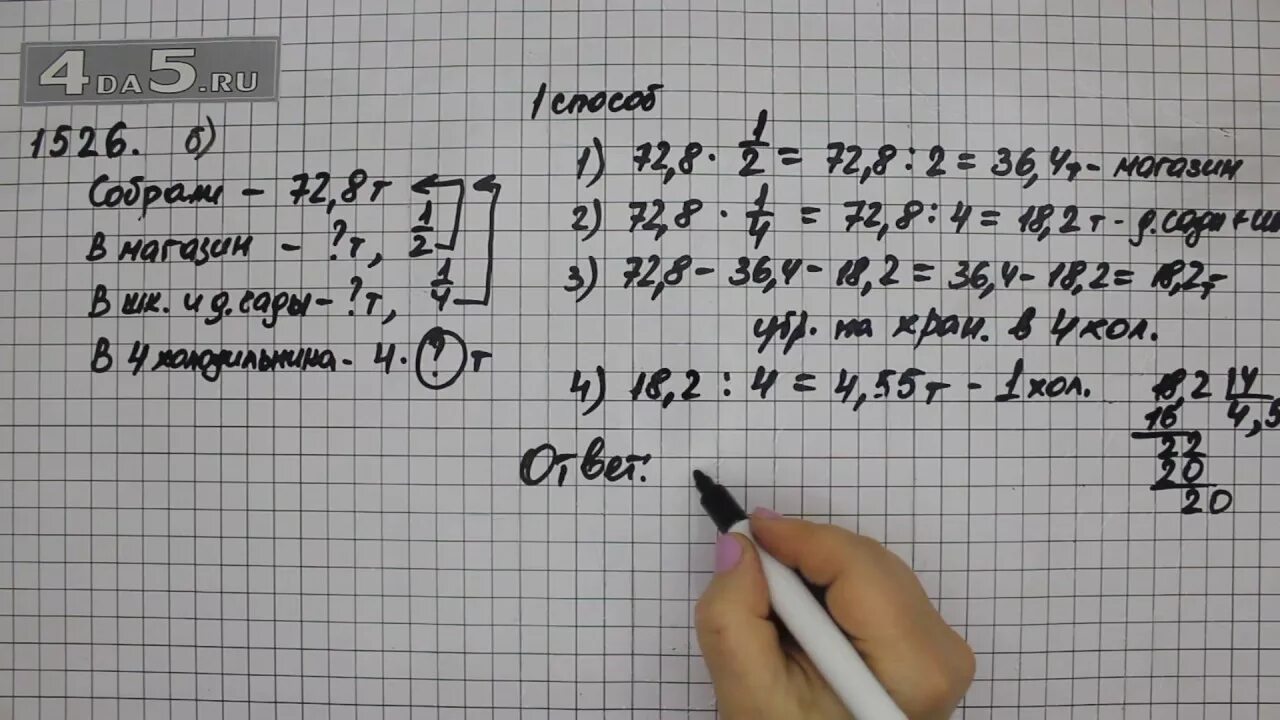 4DA5.RU
1526. б)
Собрали – 72,8т
В магазин – ?т, 1/2
В шк. и д.сады – ?т, 1/4
В 4 холодильника – 4 · ? т
1 способ
1) 72,8 · 1/2 = 72,8 : 2 = 36,4т – магазин
2) 72,8 · 1/4 = 72,8 : 4 = 18,2 т – д.сады + шк
3) 72,8 – 36,4 – 18,2 = 36,4 – 18,2 = 18,2т –
на хран. в 4 хол.
4) 18,2 : 4 = 4,55т – 1 хол.
Ответ:
18,2 4
16 4,5
22
20
20